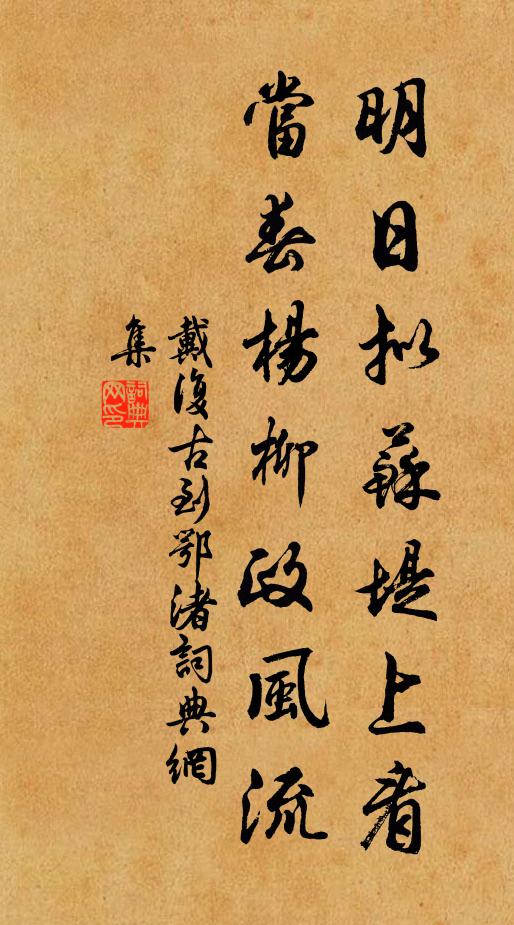 明日拟蘇堤上看
當春楊柳政風流
戴復古到鄂渚詞典網
集
詞典
网印